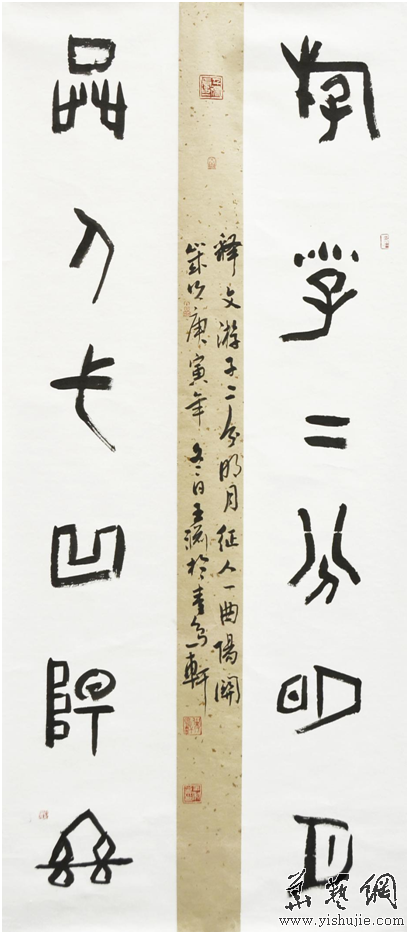 游子二分明月
征人一曲陽關
釋文游子二分明月征人一曲陽關
歲次庚寅年冬日王於青鳥軒
華藝網
www.yishujie.com